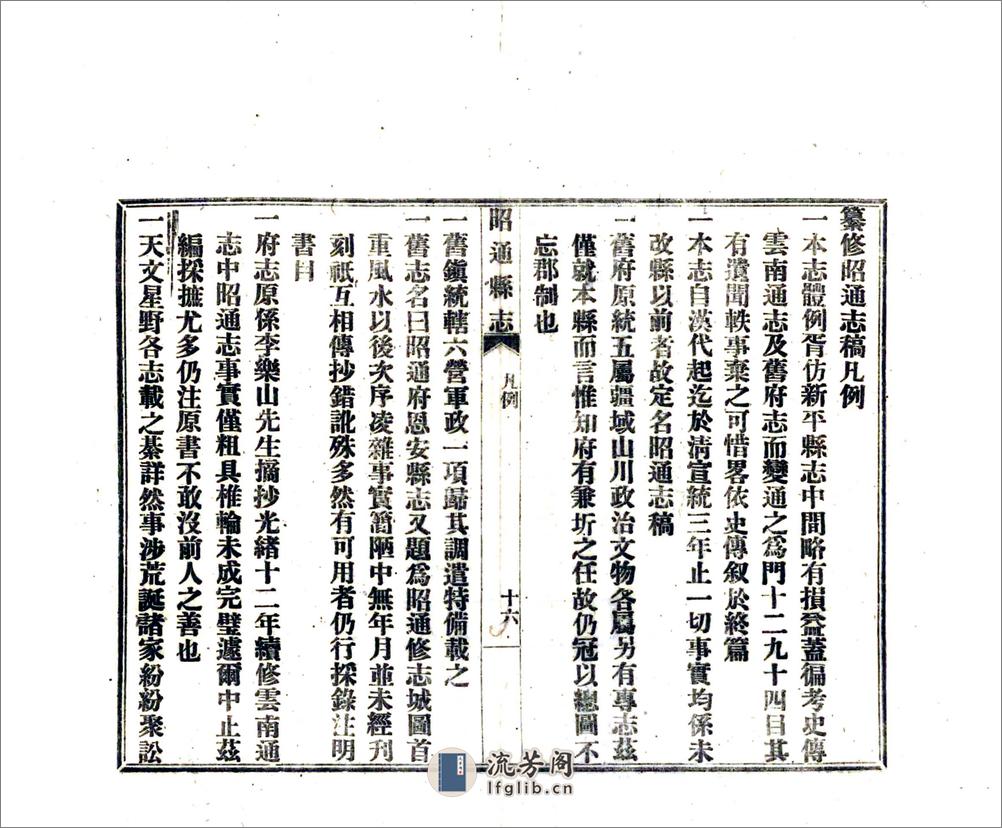 纂修昭通志稿凡例
一本志體例胥仿新平縣志中間略有損益蓋徧考史傳
雲南通志及舊府志而變通之爲門十二九十四目其
有遺聞軼事棄之可惜畧依史傳叙於終篇
一本志自漢代起迄於清宣統三年止一切事實均係未
改縣以前者故定名昭通志稿
一舊府原統五屬疆域山川政治文物各屬另有專志茲
僅就本縣而言惟知府有兼圻之任故仍冠以總圖不
忘郡制也
昭通縣志
凡例
十六
一舊鎭統轄六營軍政一項歸其調遣特備載之
一舊志名曰昭通府恩安縣志又題爲昭通修志城圖首
重風水以後次序凌雜事實簡陋中無年月並未經刊
刻祇互相傳抄錯訛殊多然有可用者仍行採錄注明
書目
一府志原係李樂山先生摘抄光緒十二年續修雲南通
志中昭通志事實僅粗具椎輪未成完璧遽爾中止茲
編採摭尤多仍注原書不敢沒前人之善也
一天文星野各志載之綦詳然事涉荒誕諸家紛紛聚訟
流芳阁
lfglib.cn